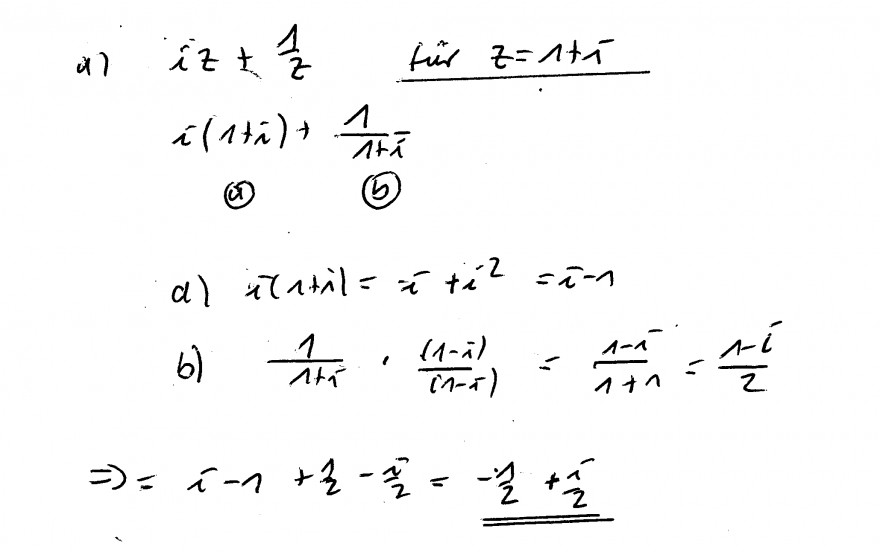 a) iz + 1/z für z = 1+i
i(1+i) + 1/(1+i)
ⓐ ⓑ
a) i(1+i) = i + i² = i-1
b) 1/(1+i) · (1-i)/(1-i) = (1-i)/(1+1) = (1-i)/2
=> = i-1 + 1/2 - i/2 = -1/2 + i/2